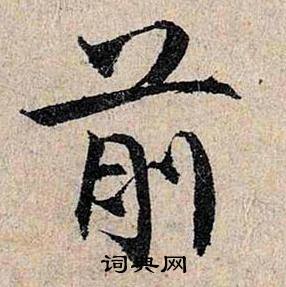 前
词典网